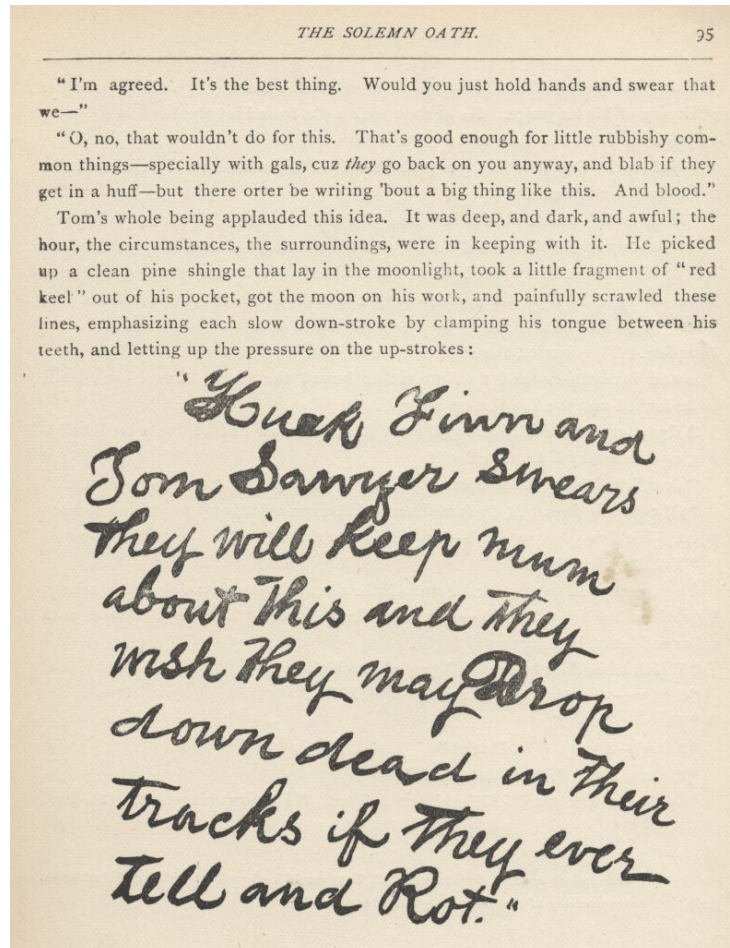 THE SOLEMN OATH. 95
“I'm agreed. It's the best thing. Would you just hold hands and swear that
we—”
“O, no, that wouldn't do for this. That's good enough for little rubbishy com-
mon things—specially with gals, cuz they go back on you anyway, and blab if they
get in a huff—but there orter be writing 'bout a big thing like this. And blood.”
Tom's whole being applauded this idea. It was deep, and dark, and awful; the
hour, the circumstances, the surroundings, were in keeping with it. He picked
up a clean pine shingle that lay in the moonlight, took a little fragment of “red
keel” out of his pocket, got the moon on his work, and painfully scrawled these
lines, emphasizing each slow down-stroke by clamping his tongue between his
teeth, and letting up the pressure on the up-strokes:
"Huck Finn and
Tom Sawyer swears
they will keep mum
about this and they
wish they may Drop
down dead in their
tracks if they ever
tell and Rot."